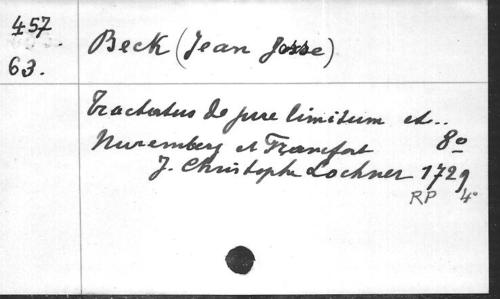 457
63.
Beck (Jean Josse)
Tractatus de jure limitum et..
Nuremberg et Francfort 8º
J. Christophe Lochner 1729
RP 4º